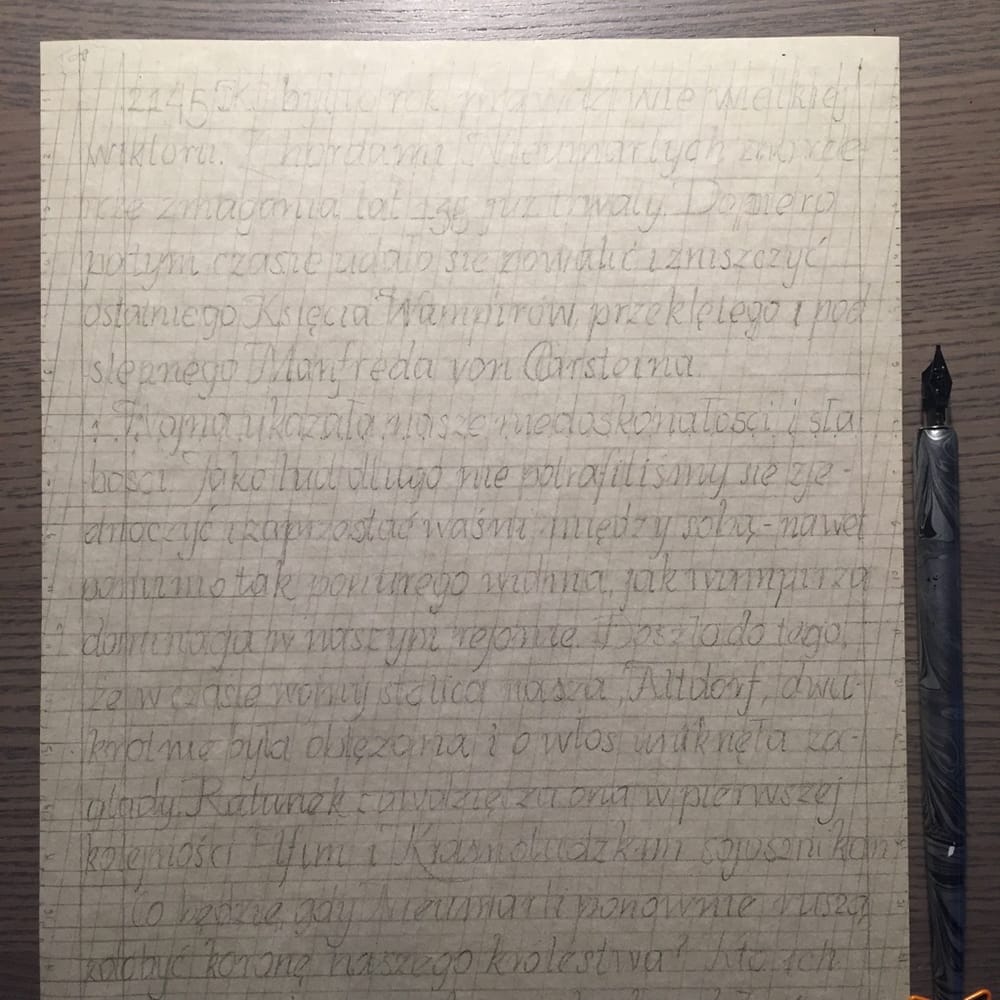 2145 K. był to rok prawdziwie wielkiej
wiktorii. Z hordami Nieumarłych
zmagania lat już trwały. Dopiero
po tym czasie udało się powalić i zniszczyć
ostatniego Księcia Wampirów, przeklętego i pod
stępnego Manfreda von Carsteina.
Wojna ukazała nasze niedoskonałości i sła
bości. Jako lud długo nie potrafiliśmy się zje-
dnoczyć i zaprzestać waśni między sobą - nawet
pomimo tak ponurego widma, jak wampirza
dominacja w naszym rejonie. Doszło do tego,
że w czasie wojny stolica nasza, Altdorf, dwu-
krotnie była oblężana i o włos uniknęła za-
głady. Ratunek zawdzięcza ona w pierwszej
kolejności Elfim i Krasnoludzkim sojusznikom
Co będzie, gdy Nieumarli ponownie ruszą
zdobyć koronę naszego królestwa? Kto ich